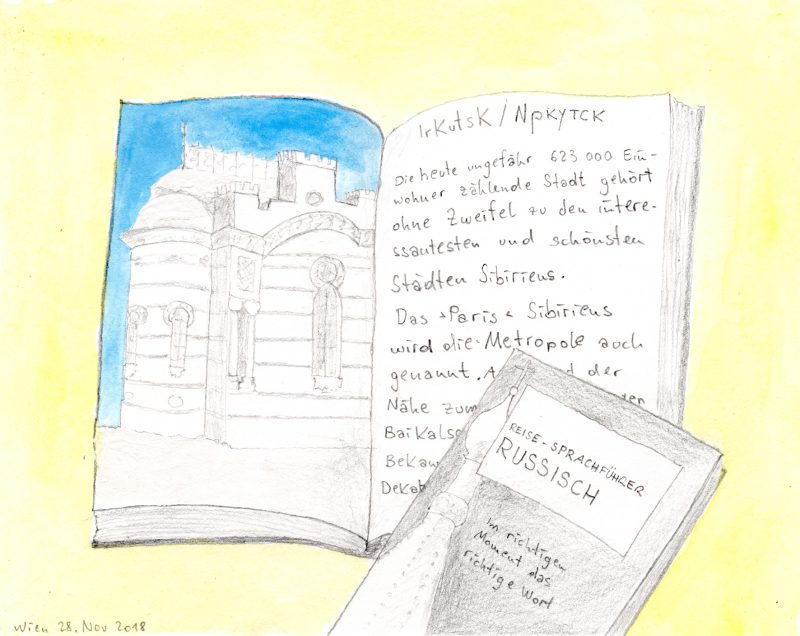 Irkutsk / Nркутск
Die heute ungefähr 623 000 Ein-
wohner zählende Stadt gehört
ohne Zweifel zu den intere-
ssantesten und schönsten
Städten Sibiriens.
Das »Paris« Sibiriens
wird die Metropole auch
genannt. A d der
Nähe zum
Baikalse
Bekan
Dekab
REISE-SPRACHFÜHRER
RUSSISCH
Im richtigen
Moment das
richtige Wort
Wien 28. Nov 2018